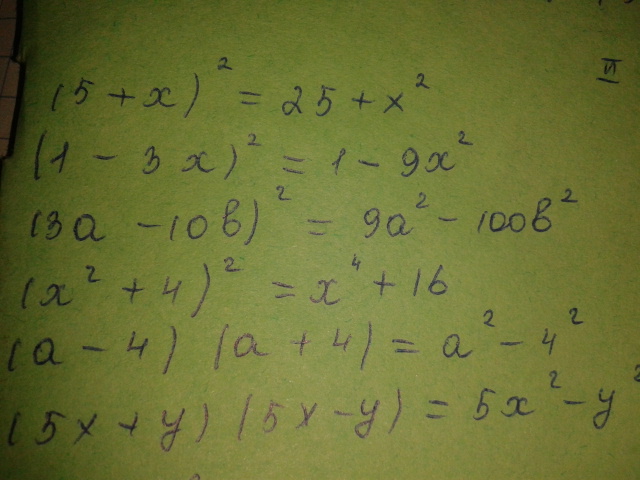 II
(5 + x)² = 25 + x²
(1 - 3x)² = 1 - 9x²
(3a - 10b)² = 9a² - 100b²
(x² + 4)² = x⁴ + 16
(a - 4) (a + 4) = a² - 4²
(5x + y) (5x - y) = 5x² - y²